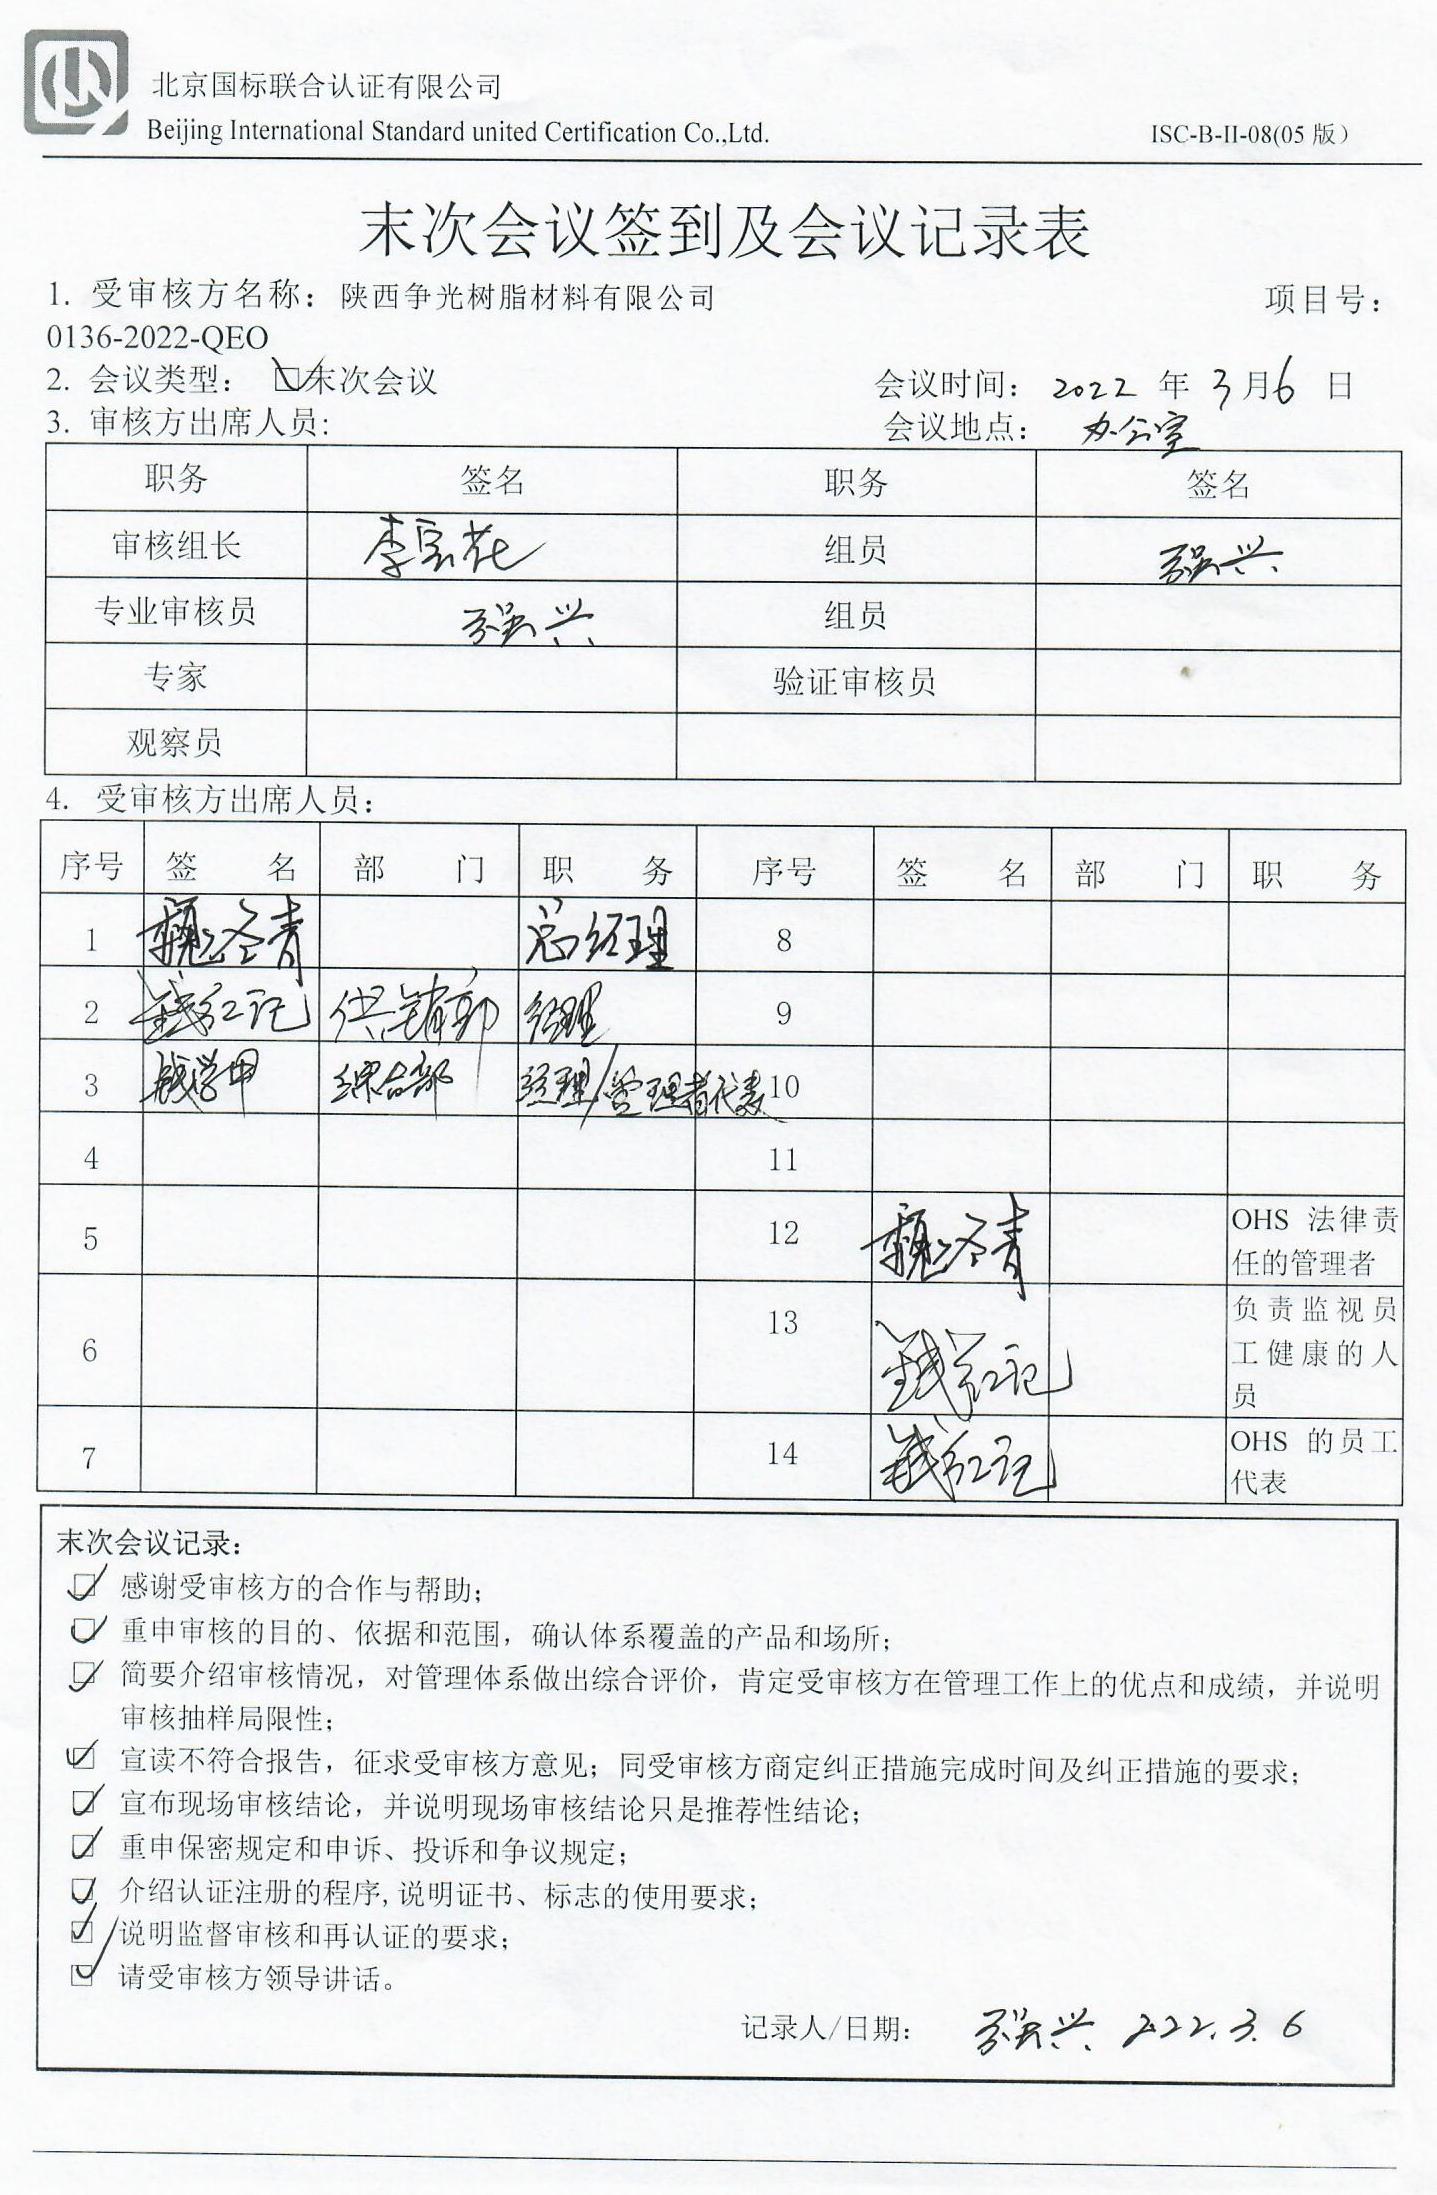 北京国标联合认证有限公司
Beijing International Standard united Certification Co.,Ltd.
ISC-B-II-08(05 版)
末次会议签到及会议记录表
1. 受审核方名称：陕西争光树脂材料有限公司 项目号：
0136-2022-QEO
2. 会议类型： □末次会议 会议时间： 2022 年 3月6 日
3. 审核方出席人员: 会议地点： 办公室
职务 签名 职务 签名
审核组长 组员
专业审核员 组员
专家 验证审核员
观察员
4. 受审核方出席人员：
序号 签 名 部 门 职 务 序号 签 名 部 门 职 务
1 总经理 8
2 钱红记 供销部 经理 9
3 钱学甲 综合部 经理/管理者代表 10
4 11
5 12 OHS 法律责
任的管理者
6 13 钱红记 负责监视员
工健康的人
员
7 14 钱红记 OHS 的员工
代表
末次会议记录：
感谢受审核方的合作与帮助；
重申审核的目的、依据和范围，确认体系覆盖的产品和场所；
简要介绍审核情况，对管理体系做出综合评价，肯定受审核方在管理工作上的优点和成绩，并说明
审核抽样局限性；
宣读不符合报告，征求受审核方意见；同受审核方商定纠正措施完成时间及纠正措施的要求；
宣布现场审核结论，并说明现场审核结论只是推荐性结论；
重申保密规定和申诉、投诉和争议规定；
介绍认证注册的程序, 说明证书、标志的使用要求；
说明监督审核和再认证的要求；
请受审核方领导讲话。
记录人/日期： 2022.3.6